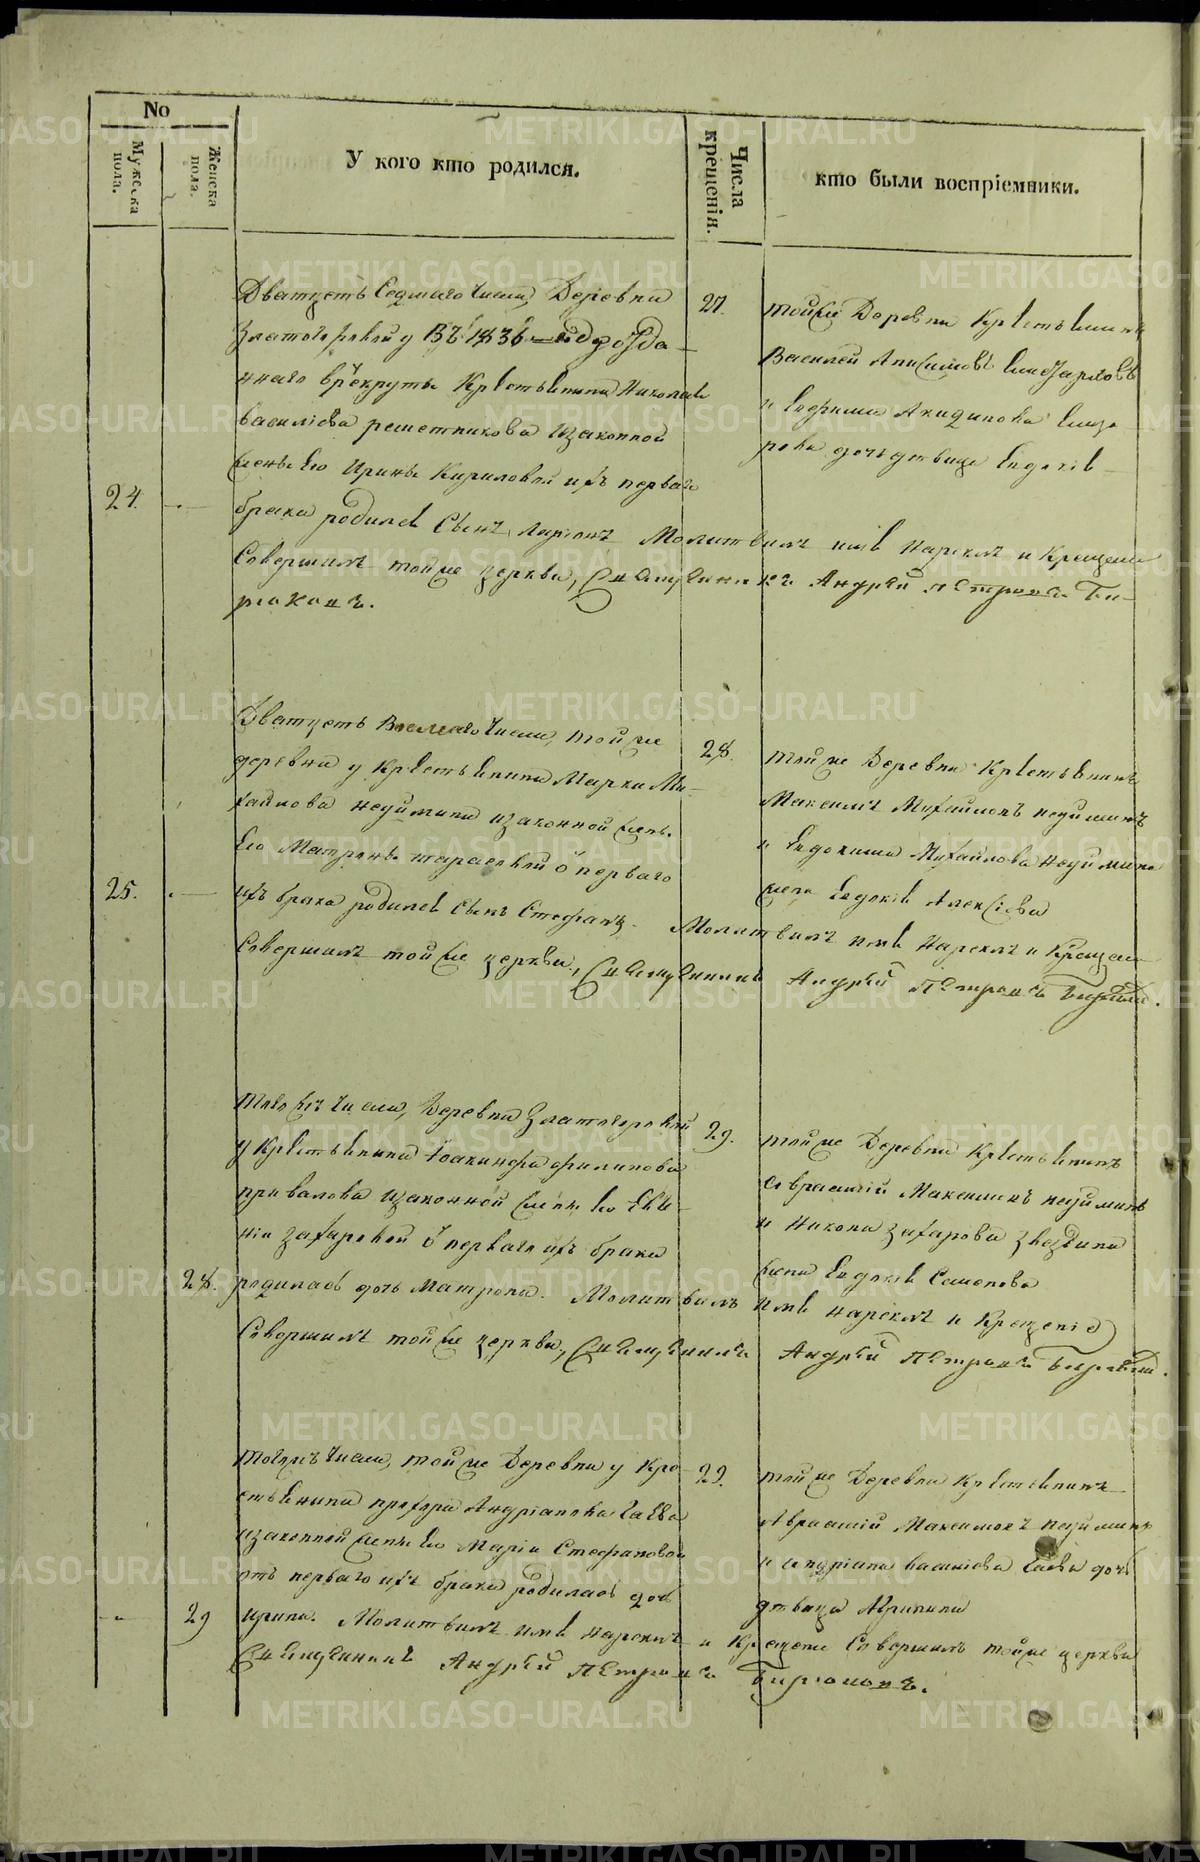 No
Мужеска пола.
Женска пола.
У кого кто родился.
Числа крещенія.
кто были воспріемники.
Дватцеть Седмаго числа, Деревни
Златогоровой у ВЪ 1836 отда
ннаго врекруты Крестьянина Николая
василіева решетникова изаконной
жены Его Ирины Кириловой ихъ перваго
24.
брака родился Сынъ Ларіонъ Молитвилъ имя Нарекъ и Крещеніе
Совершилъ тойже церкви, Священникъ Андрей Петровъ Би-
рюковъ.
27.
тойже Деревни Крестьянинъ
Василей Анисимовъ
и Акидинова
рова дочь девица
Дватцеть Восмаго числа, тойже
деревни у Крестьянина Марка Ми-
хайлова неуймина изаконной жены
Его Матрены тарасовой от перваго
25.
ихъ брака родился сынъ Стефанъ. Молитвилъ имя Нарекъ и Крещеніе
Совершилъ тойже церкви, Священникъ Андрей Петровъ Бирюковъ.
28.
тойже Деревни Крестьянинъ
Максимъ Михайловъ неуйминъ
и Евдокима Михайлова неуймина
жена Алексіева
тогожъ числа, Деревни Златогоровой
у Крестьянина Іоакинфа филипова
привалова изаконной жены Его Евге-
ніи захаровой от перваго ихъ брака
28.
родилась дочь Матрона. Молитвилъ имя нарекъ и Крещеніе
Совершилъ тойже церкви, Священникъ Андрей Петровъ Бирюковъ.
29.
тойже Деревни Крестьянинъ
Авраамій Максимовъ неуйминъ
и Никона захарова звездина
жена Семенова
тогожъ числа, тойже Деревни у Кре-
стьянина прохора Андріанова
изаконной жены Его Маріи Стефановой
отъ перваго ихъ брака родилась дочь
29
ирина. Молитвилъ имя нарекъ и Крещеніе Совершилъ тойже церкви
Священникъ Андрей Петровъ Бирюковъ.
29.
тойже Деревни Крестьянинъ
Авраамій Максимовъ неуйминъ
и Андріана василіева дочь
девица Агрипина
METRIKI.GASO-URAL.RU